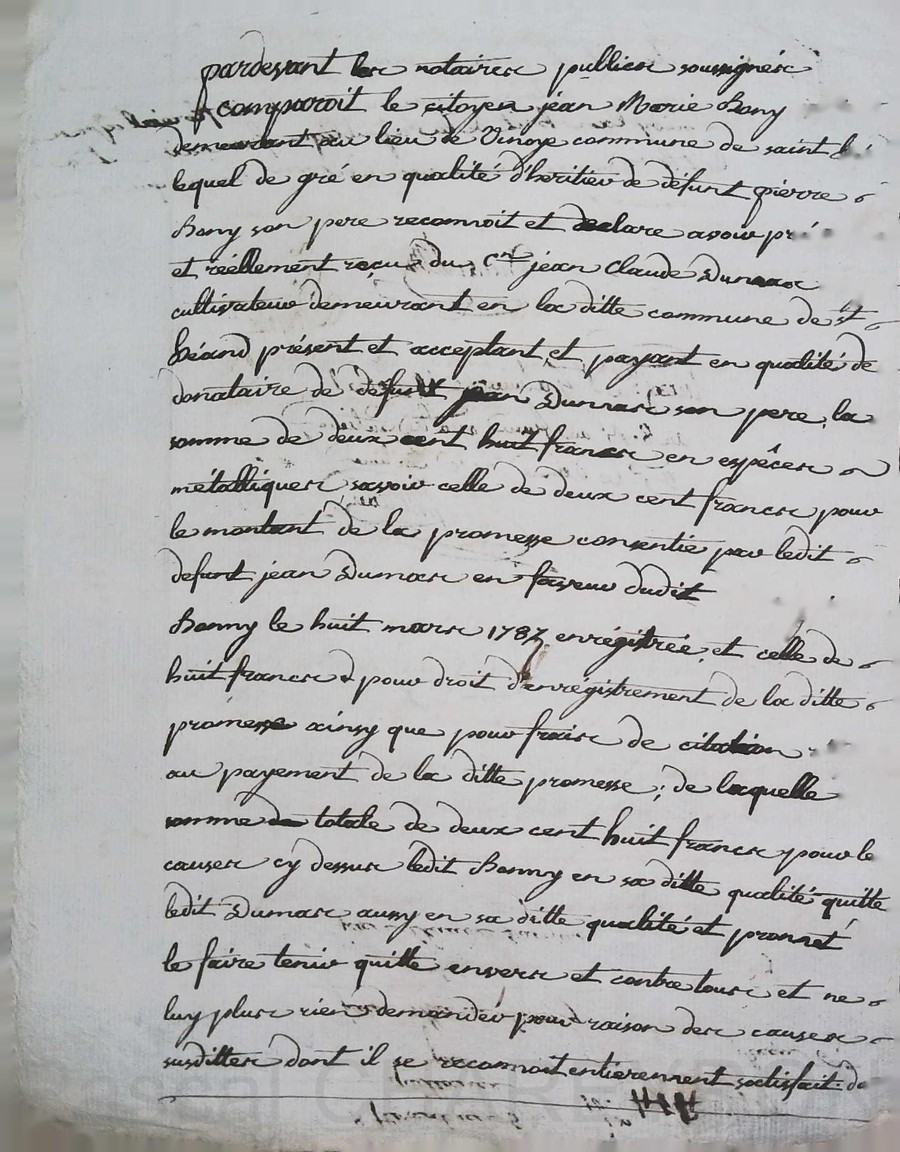 pardevant les notaires publics soussignés
comparoit le citoyen jean Marie Bony
demeurant au lieu de Vinoye commune de saint
lequel de gré en qualité d'heritier de défunt pierre
Bony son pere reconnoit et declare avoir
et réellement reçu du c.en jean Claude Dumas
cultivateur demeurant en la ditte commune de st
héand présent et acceptant et payant en qualité de
donataire de defunt jean Dumas son pere, la
somme de deux cent huit francs en espêces
métalliques savoir celle de deux cent francs pour
le montant de la promesse consentie par ledit
defunt jean Dumas en faveur dudit
Bonny le huit mars 1787 enrégistrée, et celle de
huit francs pour droit d'enrégistrement de la ditte
promesse ainsy que pour frais de citation
au payement de la ditte promesse ; de laquelle
somme totale de deux cent huit francs pour les
causes cy dessus ledit Bonny en sa ditte qualité quitte
ledit Dumas aussy en sa ditte qualité et promet
le faire tenir quitte envers et contre tous et ne
luy plus rien demander pour raison des causes
susdittes dont il se reconnoit entierement satisfait. de